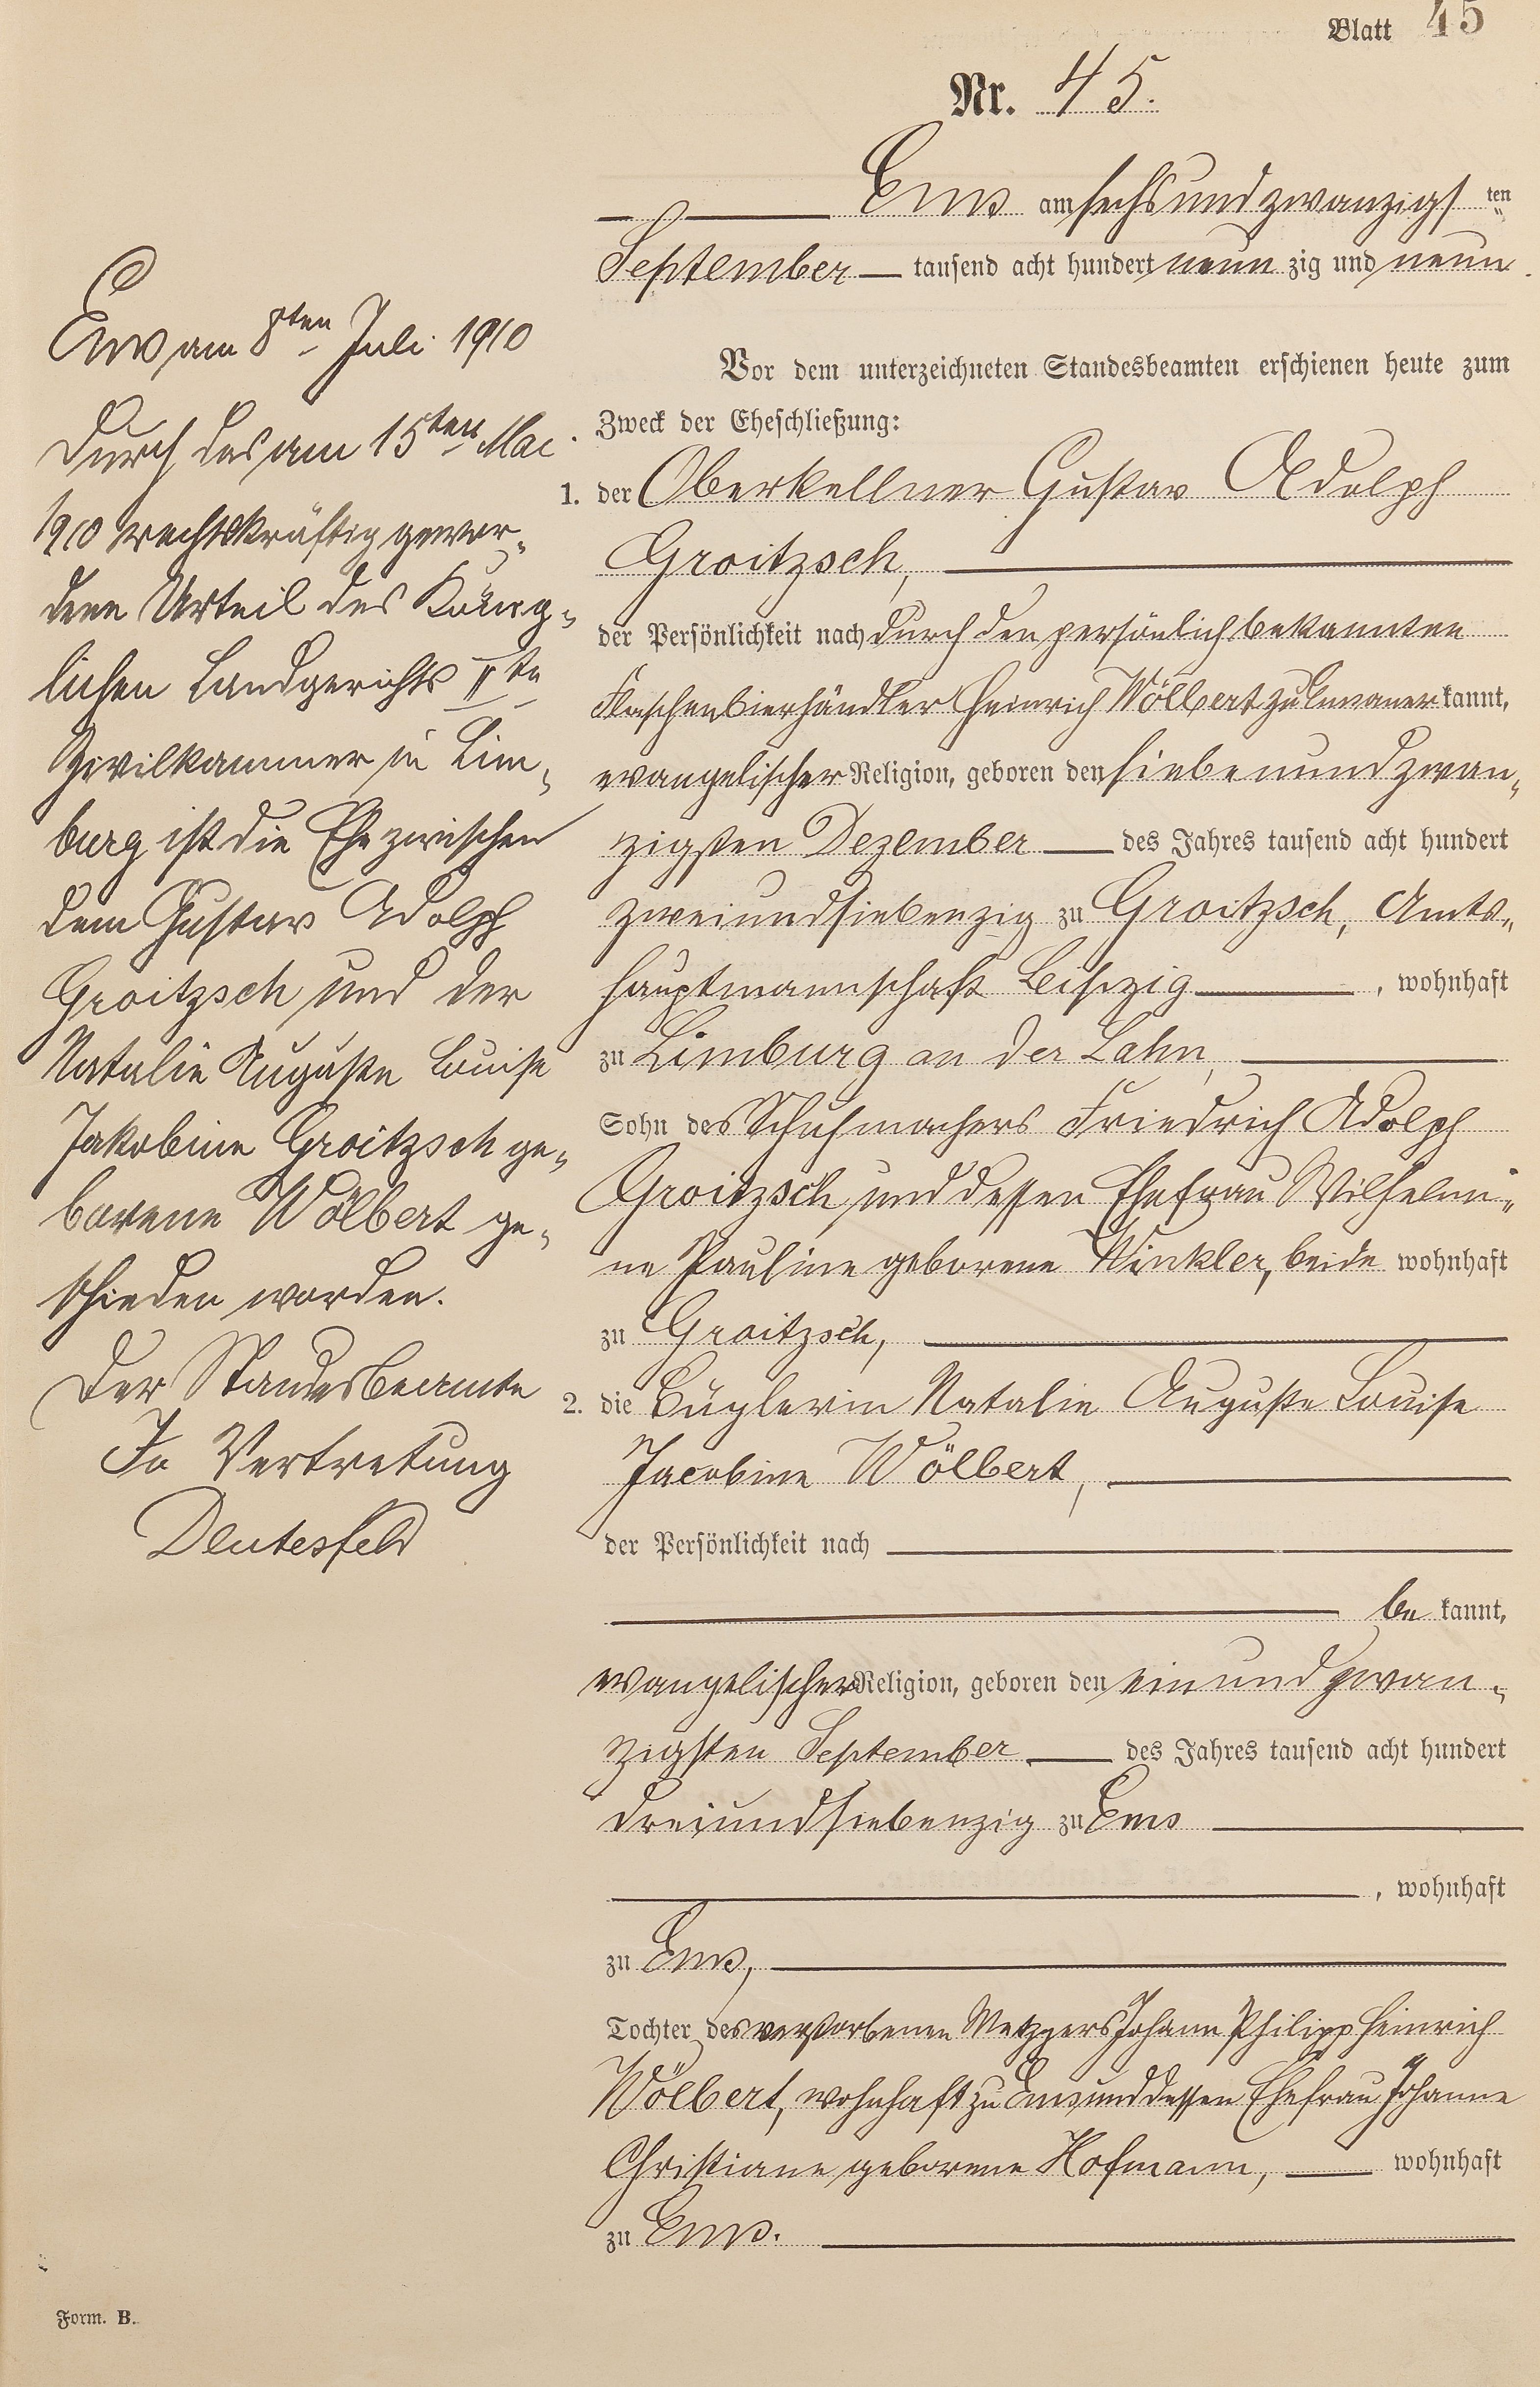 Blatt 45
Nr. 45.
Ems am sechsundzwanzigsten
September tausend acht hundert neunzig und neun.
Vor dem unterzeichneten Standesbeamten erschienen heute zum
Zweck der Eheschließung:
1. der Oberkellner Gustav Adolph
Groitzsch,
der Persönlichkeit nach durch den persönlich bekannten
Flaschenbierhändler Heinrich Wölbert zu Ems anerkannt,
evangelischer Religion, geboren den siebenundzwan-
zigsten Dezember des Jahres tausend acht hundert
zweiundsiebenzig zu Groitzsch, Amts-
hauptmannschaft Leipzig, wohnhaft
zu Limburg an der Lahn,
Sohn des Schuhmachers Friedrich Adolph
Groitzsch und dessen Ehefrau Wilhelmi-
ne Pauline geborene Winkler, beide wohnhaft
zu Groitzsch,
2. die Büglerin Natalie Auguste Louise
Jacobine Wölbert,
der Persönlichkeit nach
bekannt,
evangelischer Religion, geboren den einundzwan-
zigsten September des Jahres tausend acht hundert
dreiundsiebenzig zu Ems
, wohnhaft
zu Ems,
Tochter des verstorbenen Metzgers Johann Philipp Heinrich
Wölbert, wohnhaft zu Ems und dessen Ehefrau Johanne
Christiane geborene Hofmann, wohnhaft
zu Ems.
Ems am 8ten Juli 1910
Durch das am 15ten Mai
1910 rechtskräftig gewor-
dene Urteil des König-
lichen Landgerichts IIte
Zivilkammer in Lim-
burg ist die Ehe zwischen
dem Gustav Adolph
Groitzsch und der
Natalie Auguste Louise
Jakobine Groitzsch ge-
borene Wölbert ge-
schieden worden.
Der Standesbeamte
In Vertretung
Form. B.